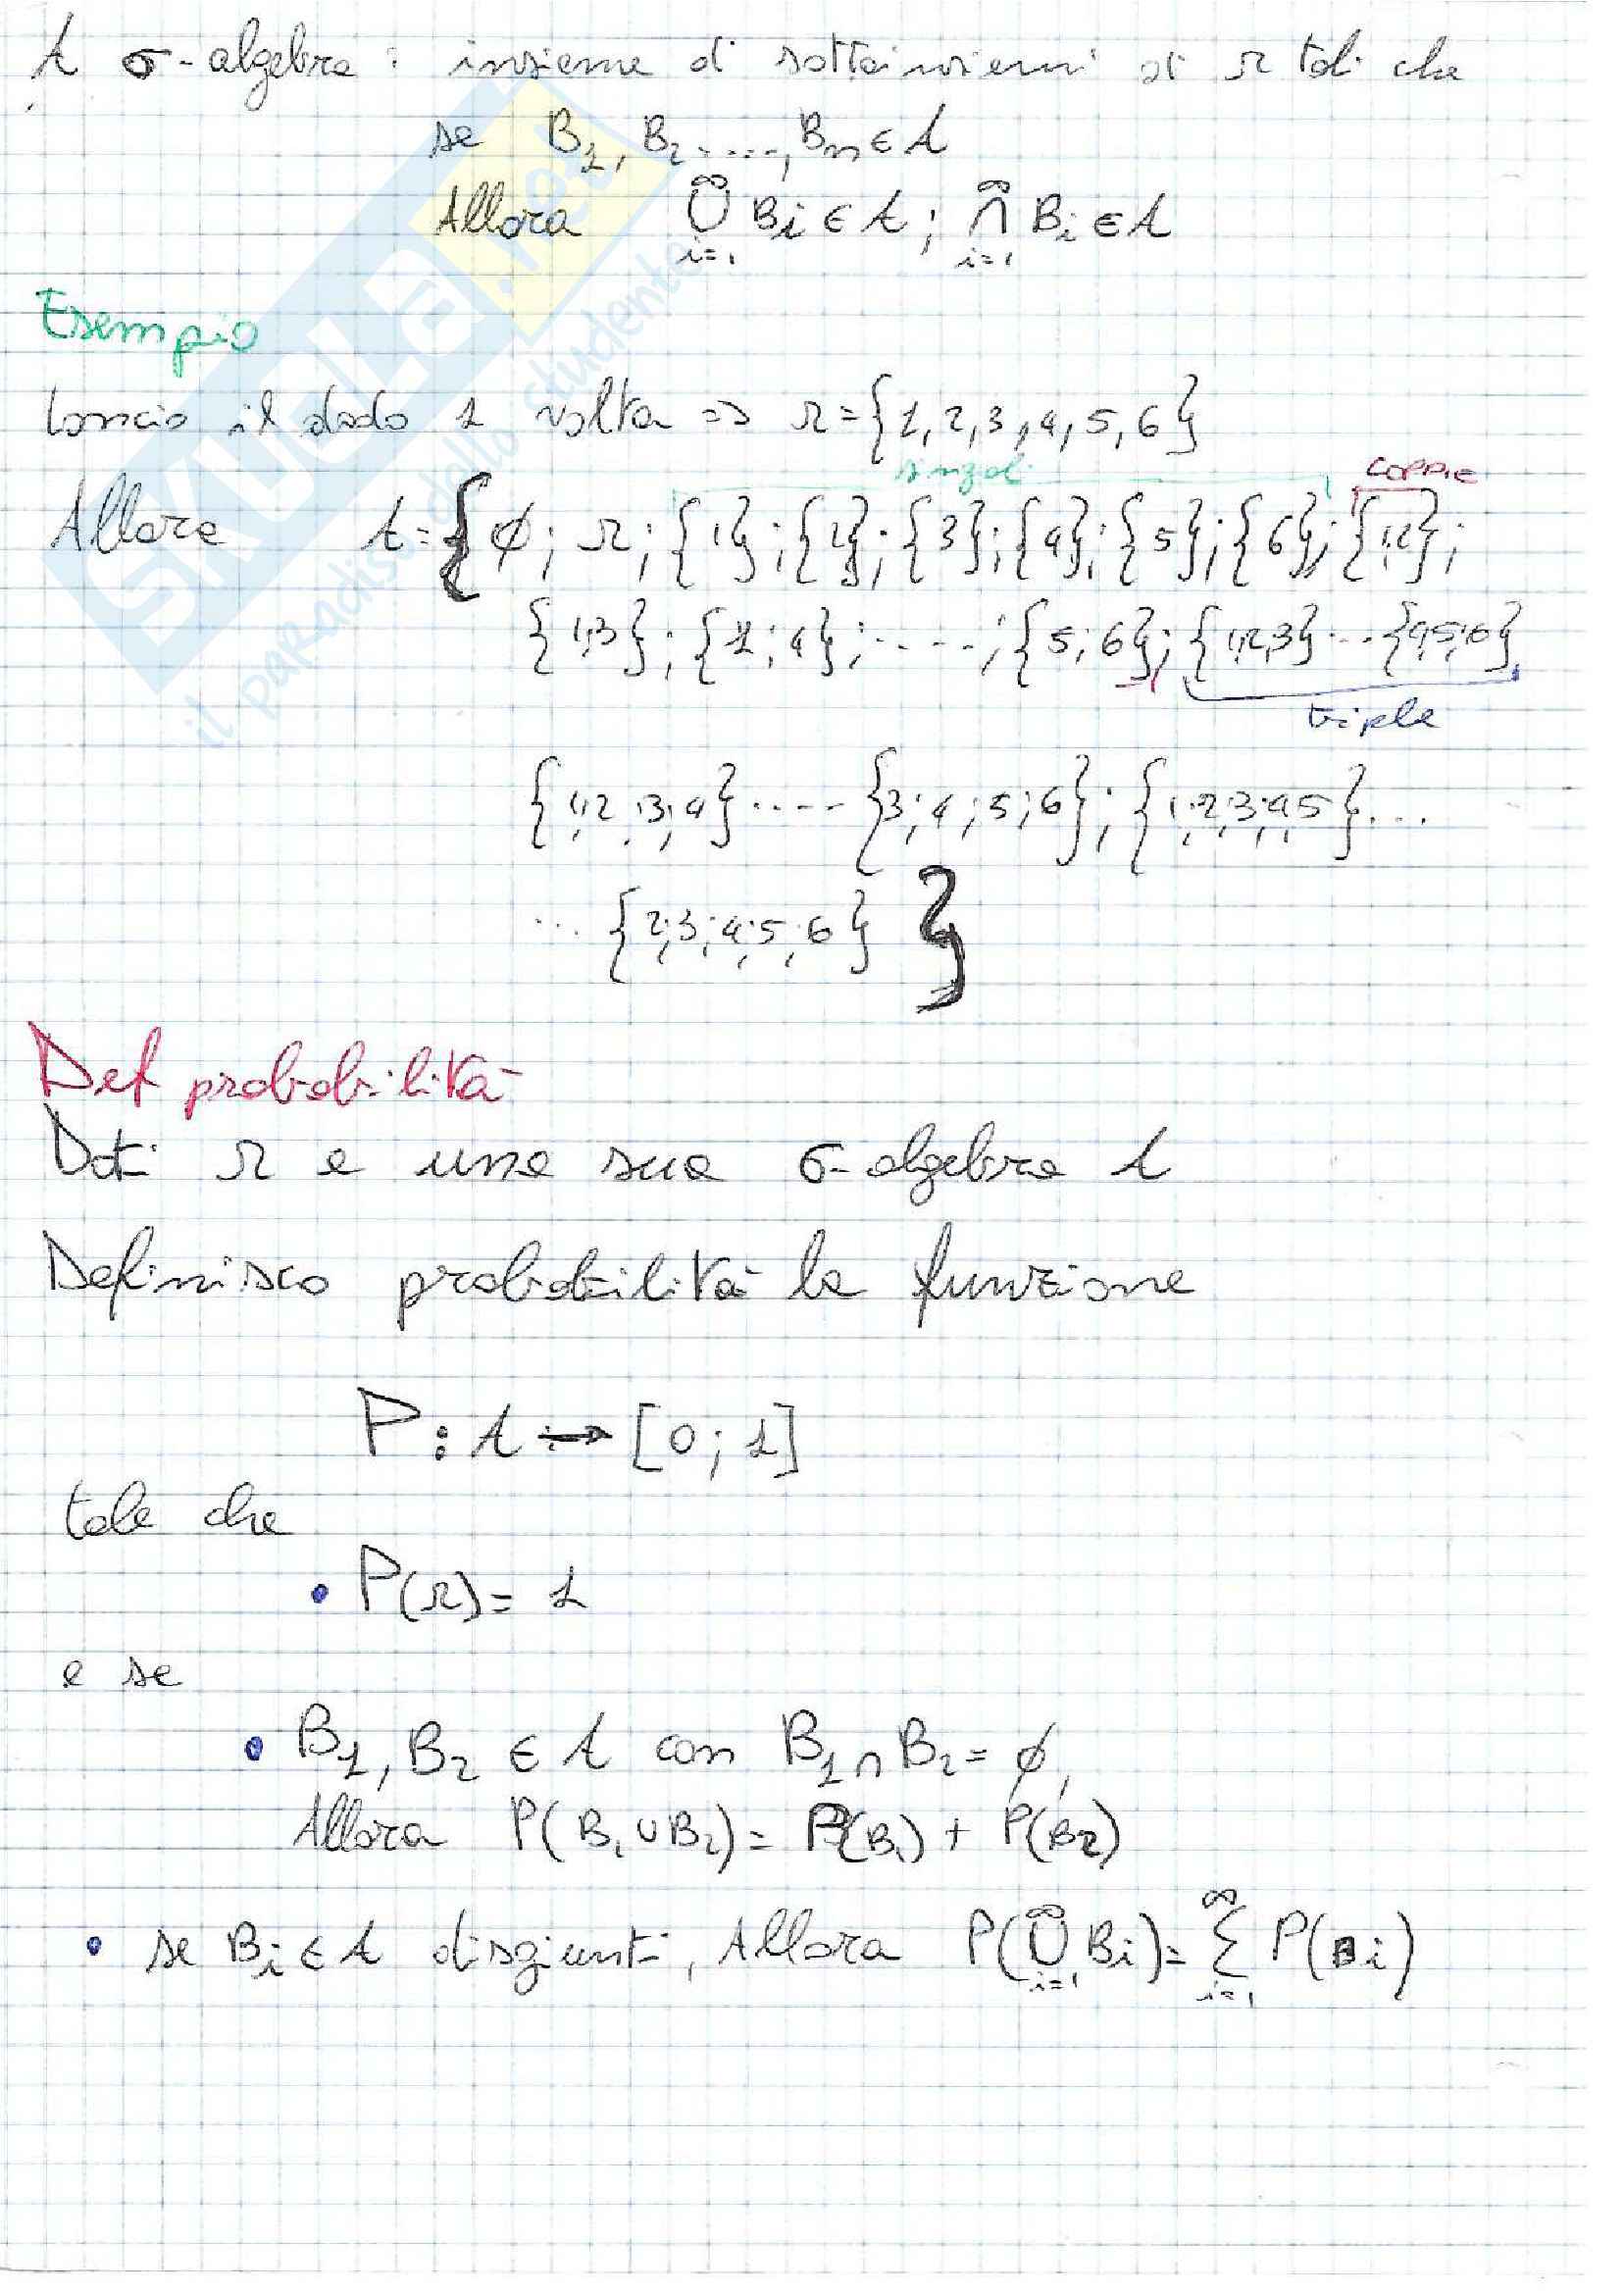 A σ-algebra : insieme di sottoinsiemi di Ω tali che
se B1, B2....., Bn ∈ A
Allora ∞⋃i=1 Bi ∈ A ; ∞⋂i=1 Bi ∈ A
Esempio
Lancio il dado 1 volta => Ω = {1, 2, 3, 4, 5, 6}
singoli COPPIE
Allora A = { ∅ ; Ω ; {1} ; {2} ; {3} ; {4} ; {5} ; {6} ; {1,2} ;
{1,3} ; {1;4} ; ..... ; {5;6} ; {1,2,3} ... {4;5;6}
triple
{1;2;3;4} ..... {3;4;5;6} ; {1;2;3;4;5} ...
... {2;3;4;5;6} }
Def probabilità
Dati Ω e una sua σ-algebra A
Definisco probabilità la funzione
P : A → [0 ; 1]
tale che
• P(Ω) = 1
e se
• B1, B2 ∈ A con B1 ∩ B2 = ∅,
Allora P(B1 ∪ B2) = P(B1) + P(B2)
• se Bi ∈ A disgiunti, Allora P(∞⋃i=1 Bi) = ∞Σi=1 P(Bi)
SKUOLA.net
il paradiso dello studente